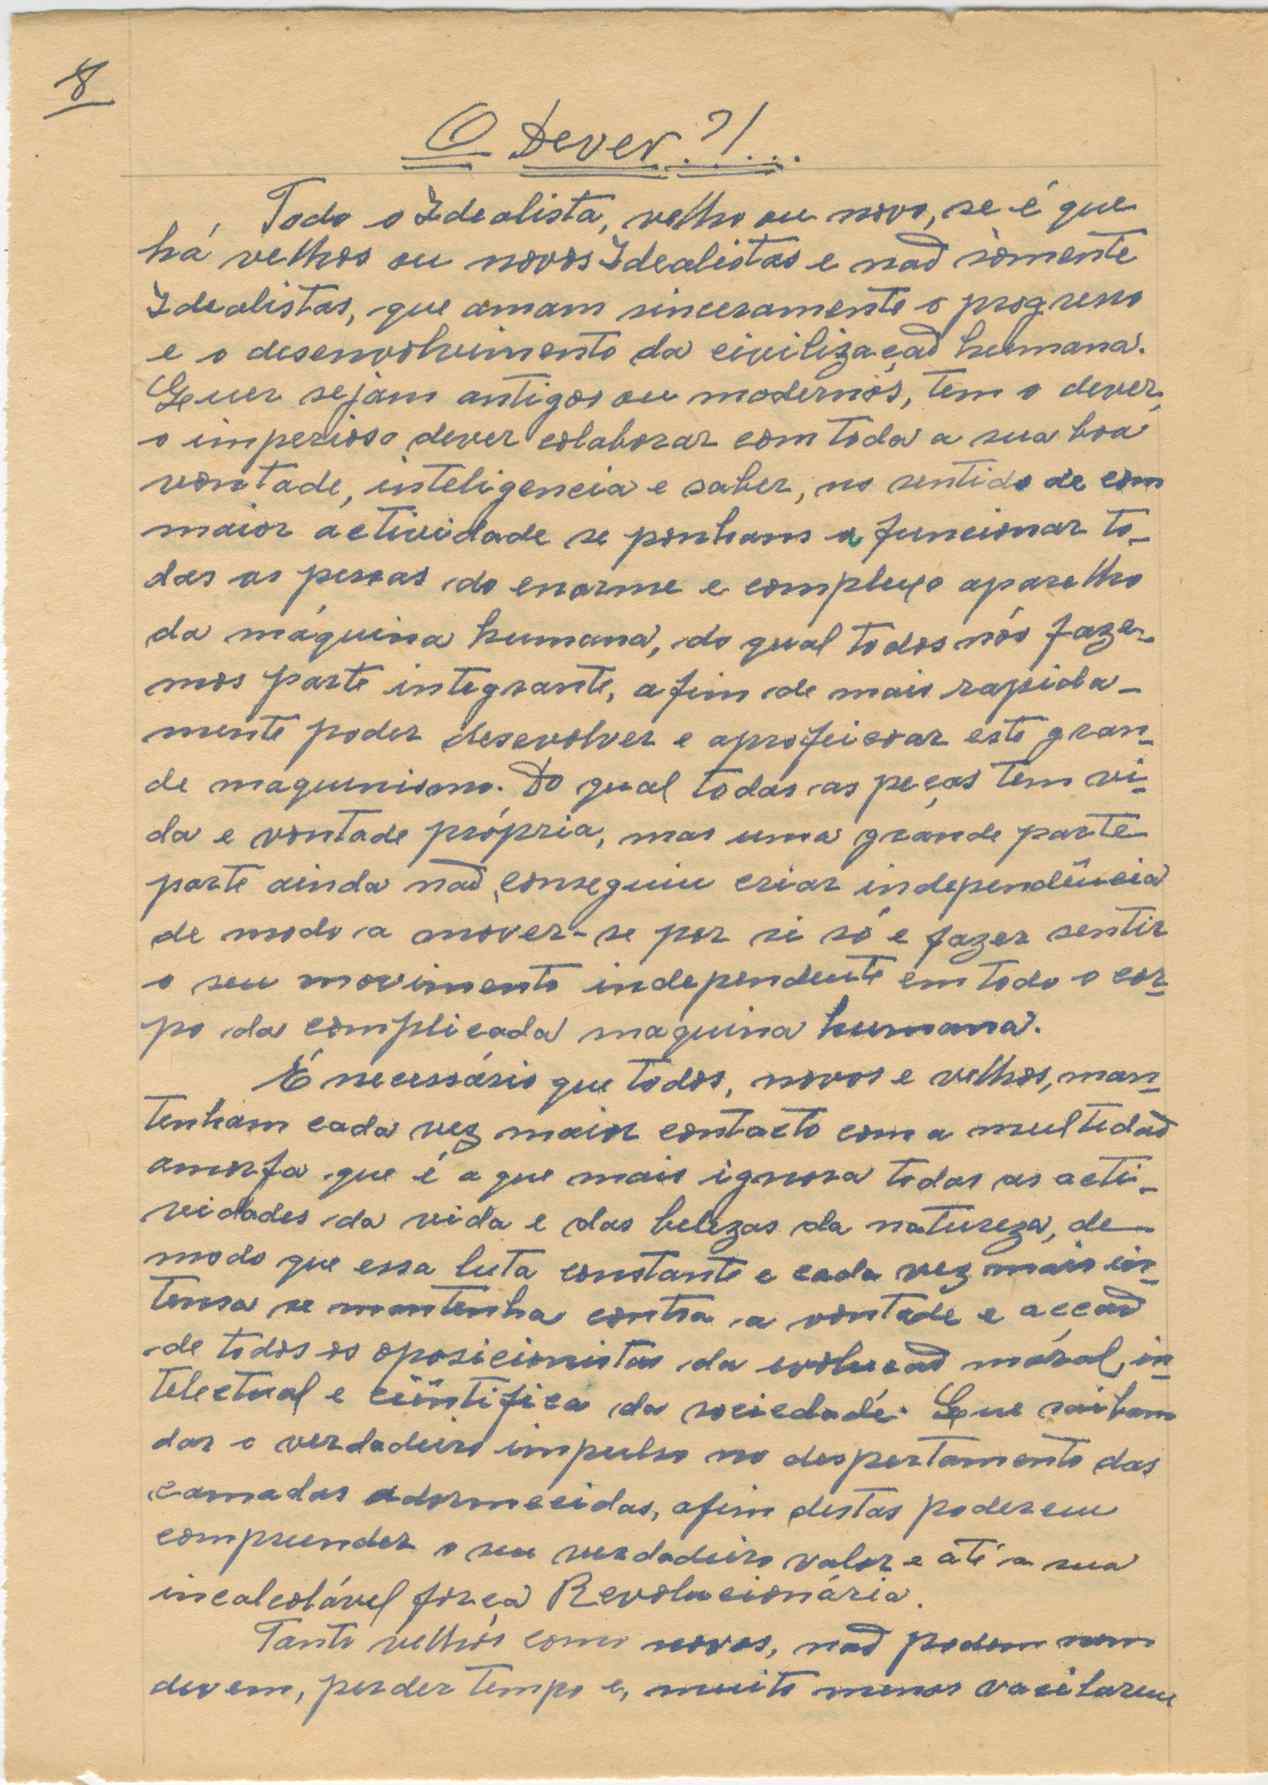 8
O Dever?!...
Todo o Idealista, velho ou novo, se é que
há velhos ou novos Idealistas e não sòmente
Idealistas, que amam sinceramente o progresso
e o desenvolvimento da civilização humana.
Quer sejam antigos ou modernos, tem o dever,
o imperioso dever colaborar com toda a sua boa
vontade, inteligencia e saber, no sentido de com
maior actividade se ponham a funcionar to-
das as pessoas do enorme e complexo aparelho
da máquina humana, do qual todos nós faze-
mos parte integrante, afim de mais rapida-
mente poder desevolver e aprofeiçoar este gran-
de maquinismo. Do qual todas as peças tem vi-
da e vontade própria, mas uma grande parte
parte ainda não conseguiu criar independência
de modo a mover-se por si só e fazer sentir
o seu movimento independente em todo o cor-
po da complicada maquina humana.
É necessário que todos, novos e velhos, man-
tenham cada vez maior contacto com a multidão
amorfa que é a que mais ignora todas as acti-
vidades da vida e das belezas da natureza, de
modo que essa luta constante e cada vez mais in-
tensa se mantenha contra a vontade e acção
de todos os oposicionistas da evolução moral, in-
telectual e ciêntifica da sociedade. Que saibam
dar o verdadeiro impulso no despertamento das
camadas adormecidas, afim destas poderem
compreender o seu verdadeiro valor e até a sua
incalcolável força Revolucionária.
Tanto velhos como novos, não podem nem
devem, perder tempo e, muito menos vacilarem